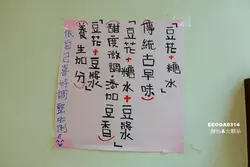 「豆花+糖水」
(傳統古早味)
「豆花+糖水+豆漿」
(甜度微調,添加豆香)
「豆花+豆漿」
(養生加分)
依自己喜好調整比例~
EEOOA0314